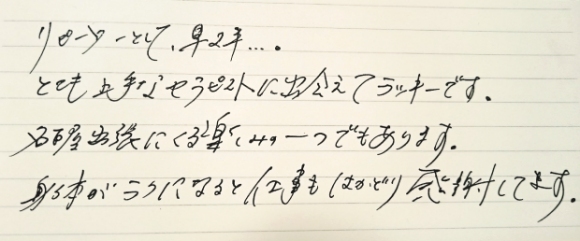 リピーターとして、早2年…。
とても上手なセラピストに出会えてラッキーです。
名古屋出張にくる楽しみの一つでもあります。
身体がラクになると仕事もはかどり感謝してます。